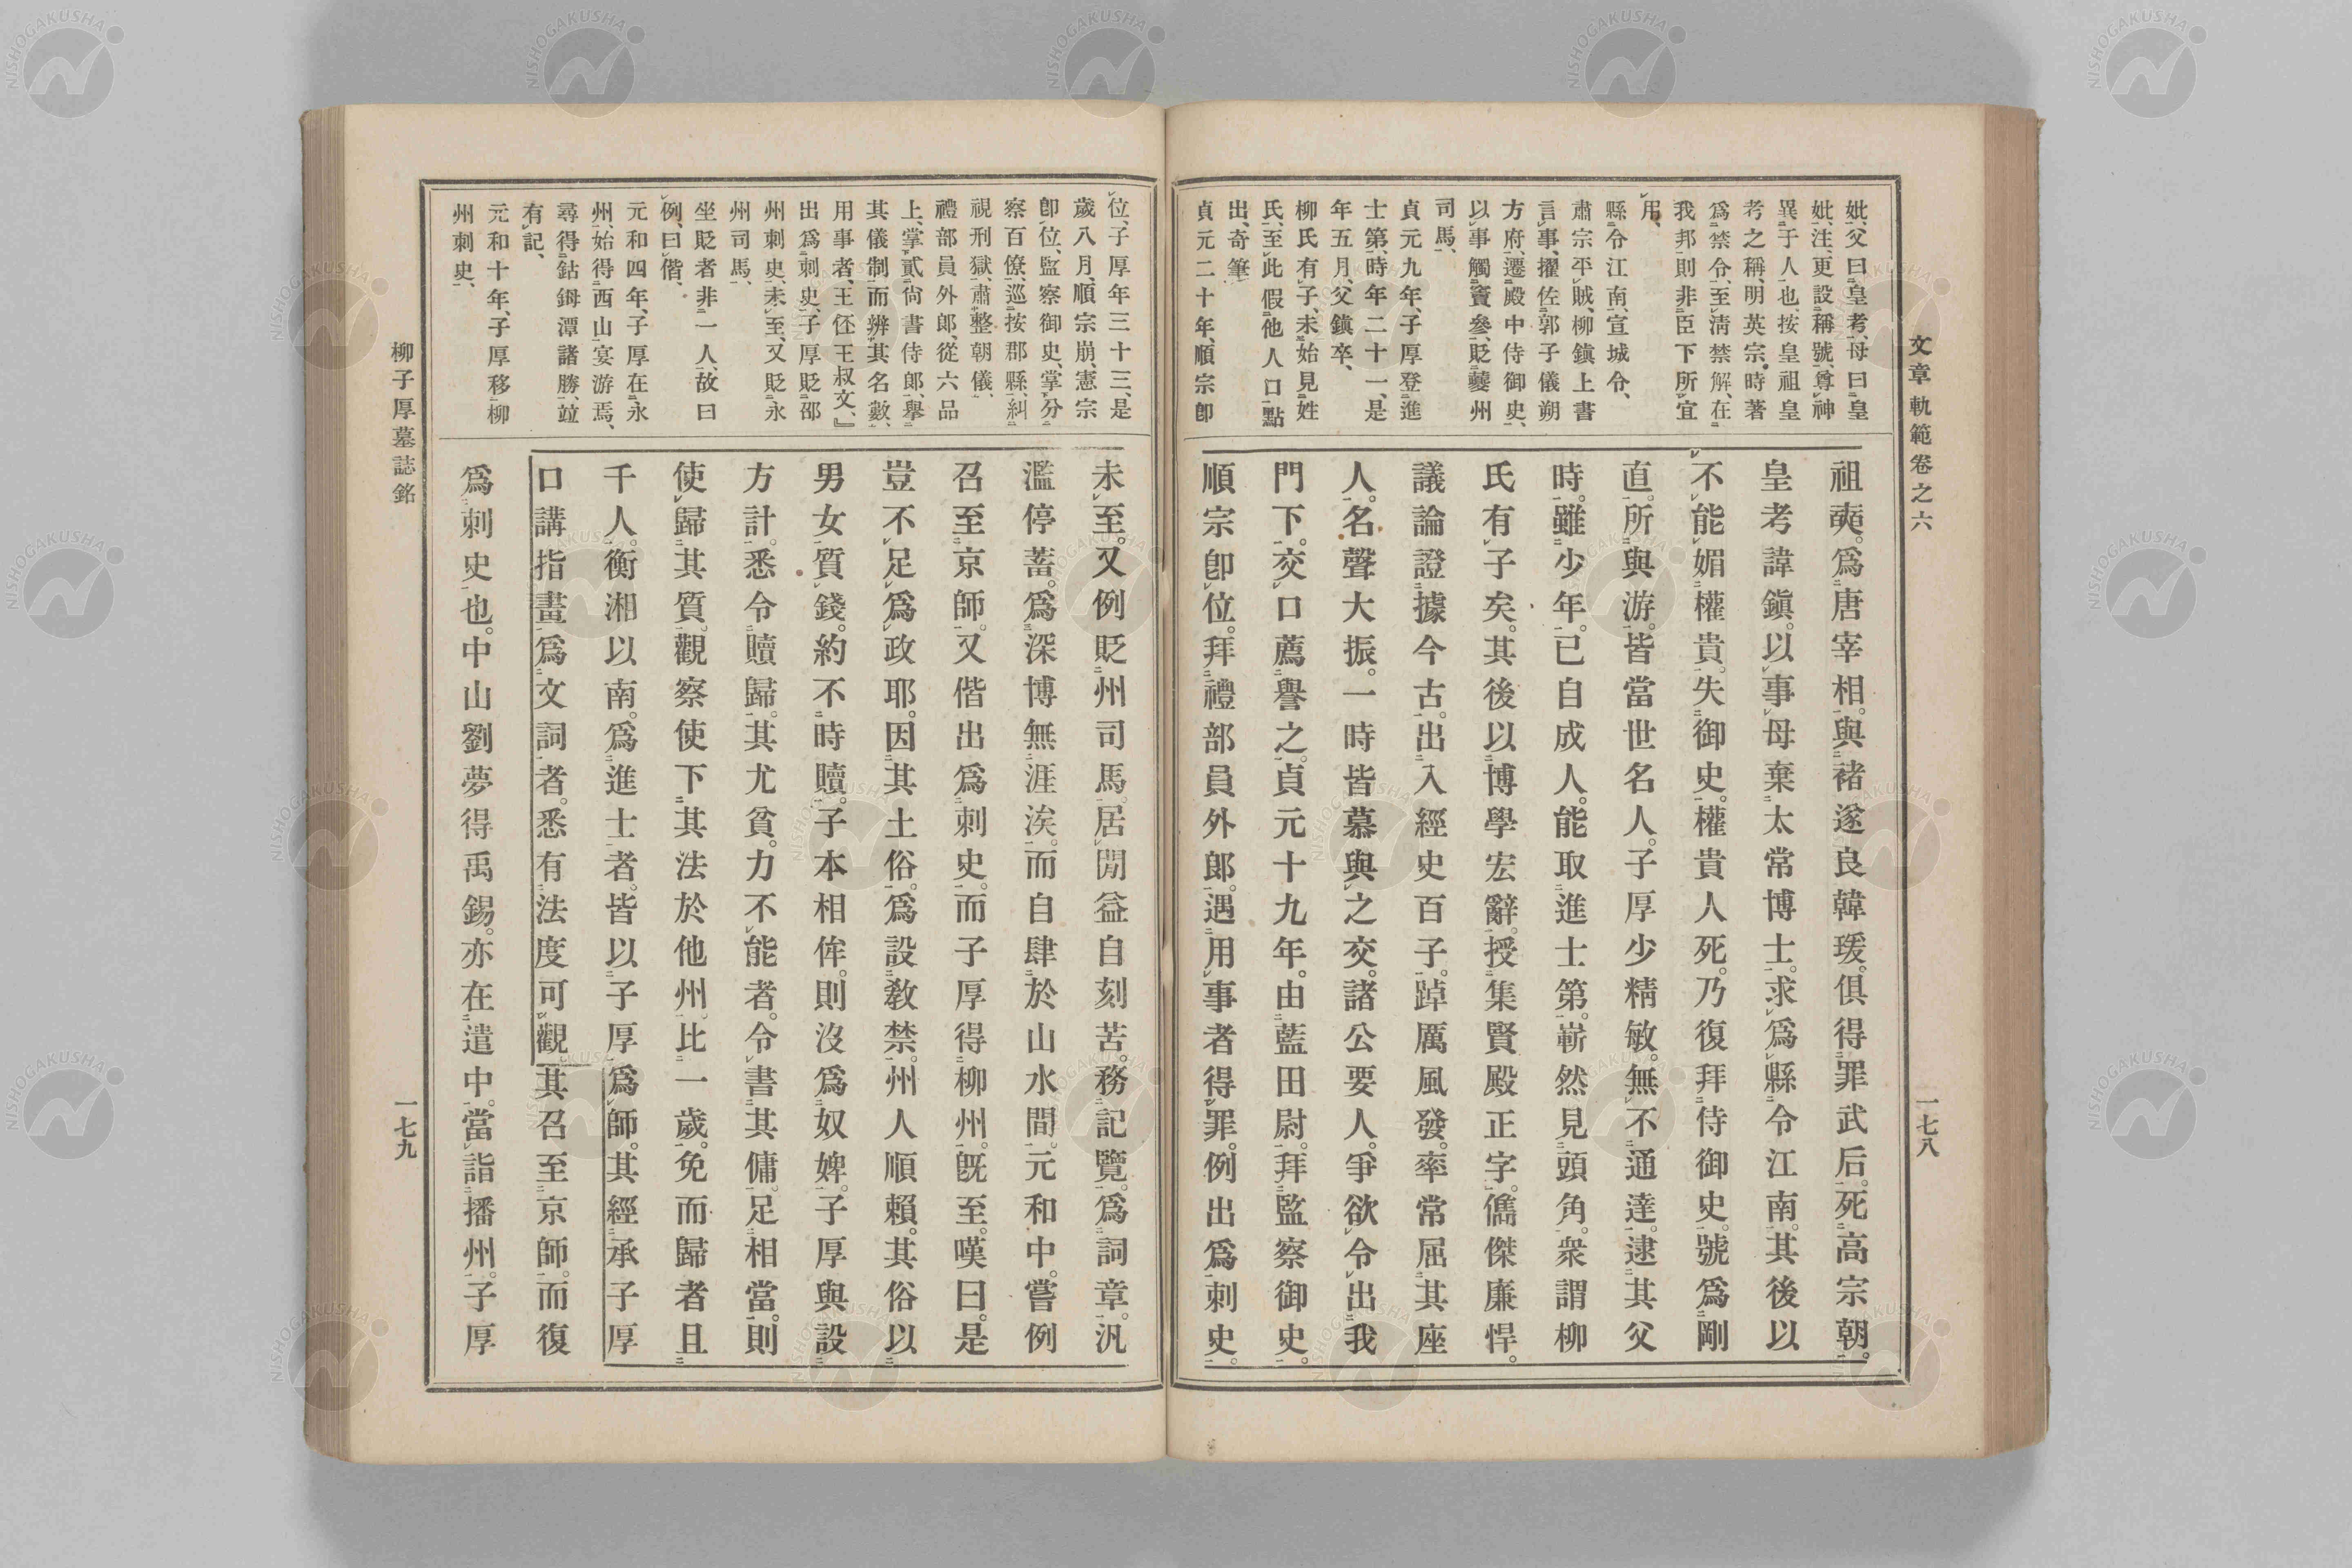 文章軌範卷之六
一七八
妣、父曰皇考、母曰皇
妣、注、更設稱號、尊神
異于人也、按皇祖皇
考之稱、明英宗時著
爲禁令、至淸禁解、在
我邦則非臣下所宜
用、
縣令江南、宣城令、
肅宗平賊、柳鎭上書
言事、擢佐郭子儀朔
方府、遷殿中侍御史、
以事觸竇參、貶夔州
司馬、
貞元九年、子厚登進
士第、時年二十一、是
年五月、父鎭卒、
柳氏有子、未始見姓
氏、至此假他人口點
出、奇筆、
貞元二十年、順宗卽
祖奭。爲唐宰相。與褚遂良韓瑗。俱得罪武后。死高宗朝。
皇考諱鎭。以事母棄太常博士。求爲縣令江南。其後以
不能媚權貴。失御史。權貴人死。乃復拜侍御史。號爲剛
直。所與游。皆當世名人。子厚少精敏。無不通達。逮其父
時。雖少年。已自成人。能取進士第。嶄然見頭角。衆謂柳
氏有子矣。其後以博學宏辭。授集賢殿正字。儁傑廉悍。
議論證據今古。出入經史百子。踔厲風發。率常屈其座
人。名聲大振。一時皆慕與之交。諸公要人。爭欲令出我
門下。交口薦譽之。貞元十九年。由藍田尉。拜監察御史。
順宗卽位。拜禮部員外郎。遇用事者得罪。例出爲刺史。
位、子厚年三十三、是
歲八月、順宗崩、憲宗
卽位、監察御史、掌分
察百僚、巡按郡縣、糾
視刑獄、肅整朝儀、
禮部員外郎、從六品
上、掌貳尙書侍郎、擧
其儀制、而辨其名數、
用事者、王伾王叔文、』
出爲刺史、子厚貶邵
州刺史、未至、又貶永
州司馬、
坐貶者非一人、故曰
例、曰偕、
元和四年、子厚在永
州、始得西山宴游焉、
尋得鈷鉧潭諸勝、竝
有記、
元和十年、子厚移柳
州刺史、
未至。又例貶州司馬。居閒益自刻苦。務記覽。爲詞章。汎
濫停蓄。爲深博無涯涘。而自肆於山水間。元和中。嘗例
召至京師。又偕出爲刺史。而子厚得柳州。旣至。嘆曰。是
豈不足爲政耶。因其土俗。爲設敎禁。州人順賴。其俗以
男女質錢。約不時贖。子本相侔。則沒爲奴婢。子厚與設
方計。悉令贖歸。其尤貧。力不能者。令書其傭。足相當。則
使歸其質。觀察使下其法於他州。比一歲。免而歸者且
千人。衡湘以南。爲進士者。皆以子厚爲師。其經承子厚
口講指畫爲文詞者。悉有法度可觀。其召至京師。而復
爲刺史也。中山劉夢得禹錫。亦在遣中。當詣播州。子厚
柳子厚墓誌銘
一七九